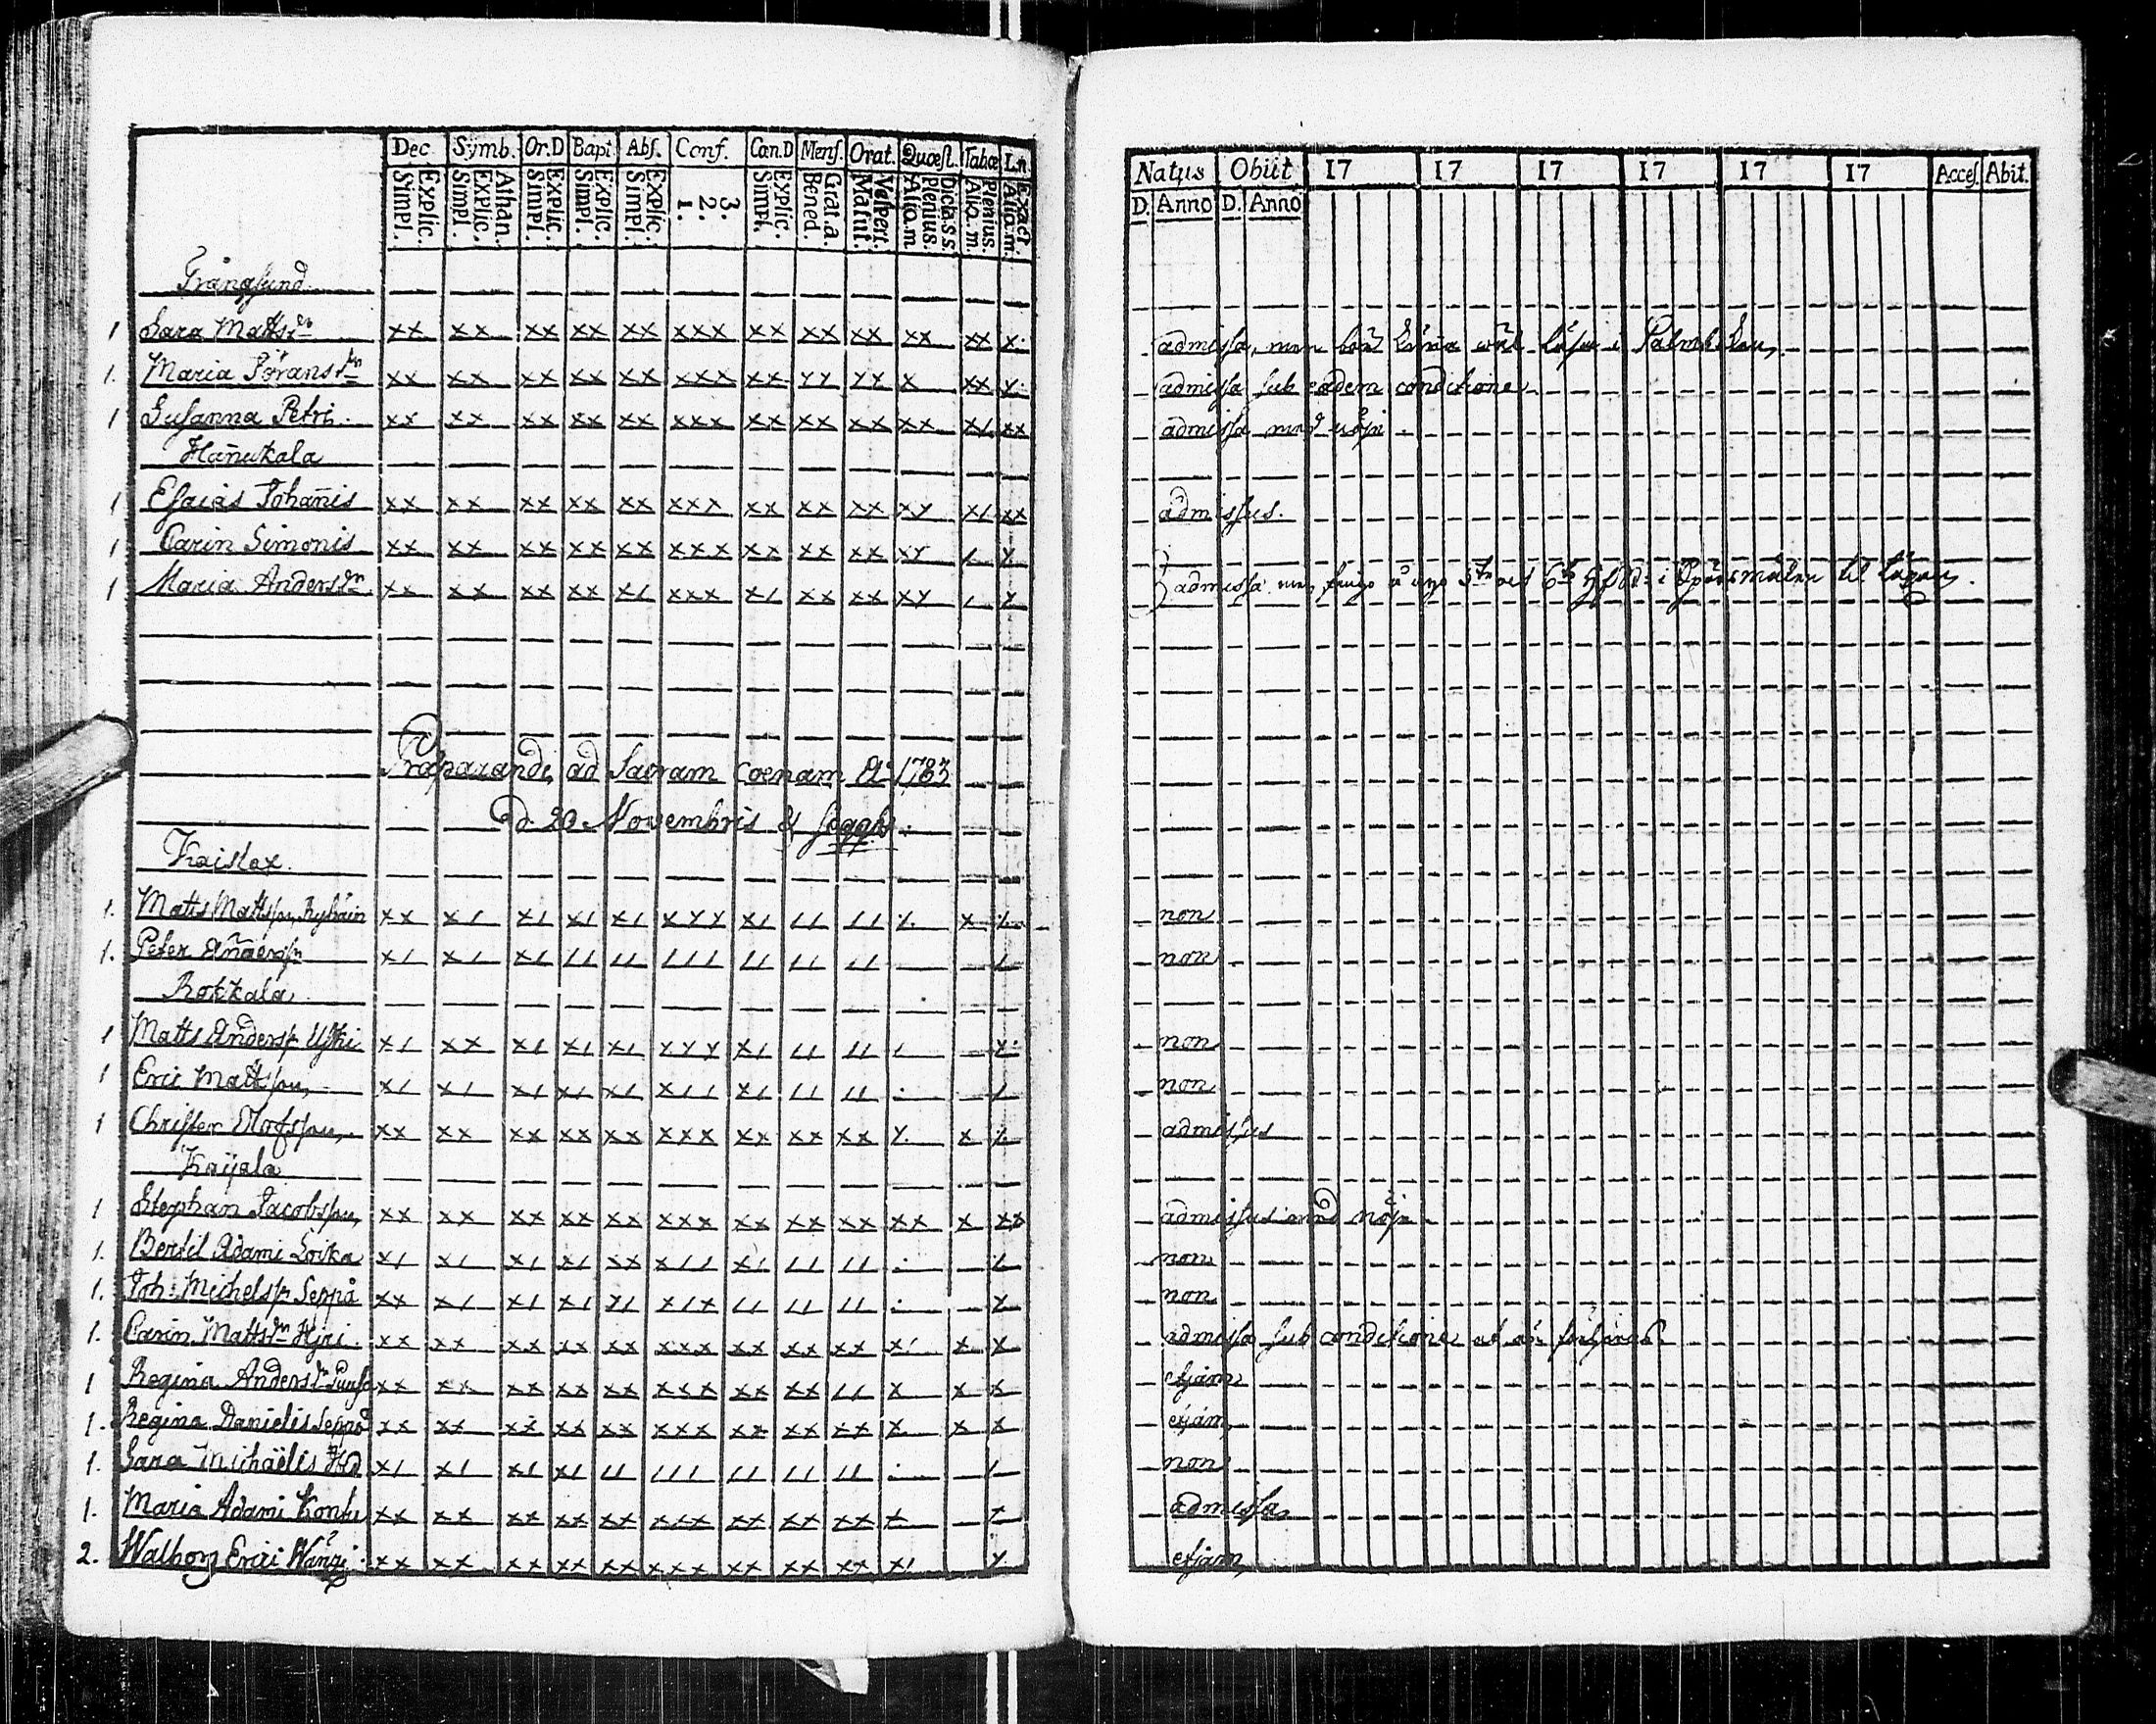 Dec. Symb. Or.D Bapt. Abs. Conf. Can.D Mens. Orat. Quæst. Tabæ Ln
Simpl. Explic. Simpl. Explic. Athan. Simpl. Explic. Simpl. Explic. Simpl. Explic. 1. 2. 3. Simpl. Explic. Bened. Grat.a. Matut. Vespert. Aliq.m. Plenius. Dicta.s.s. Aliq.m. Plenius. Aliq.m. Exact
Natus Obiit 17 17 17 17 17 17 Acces. Abit.
D. Anno D. Anno
Trångsund
1 Sara Mattsdr xx xx xx xx xx xxx xx xx xx xx xx x. admissa, men bör lära wäl läsa i
1. Maria Göransdr xx xx xx xx xx xxx xx xx xx x xx x. admissa sub eadem conditione
1 Susanna Petri xx xx xx xx xx xxx xx xx xx xx x/ xx admissa med nöje
Hañukala
1 Esaias Johañis xx xx xx xx xx xxx xx xx xx xx x/ xx admissus.
1 Carin Simonis xx xx xx xx xx xxx xx xx xx xx / x
1 Maria Andersdr xx xx xx xx x/ xxx x/ xx xx xx / x admissa men 5te 6te i Spörsmålen til
Præparandi ad Sacram Coenam Ao 1783
d. 20 Novembris & seqq.
Kaislax
1. Matts Mattsson xx x/ x/ x/ x/ xxx x/ // // x. x x. non
1. Peter Anderss. x/ x/ x/ // // /// // // // / non
Rokkala
1 Matts Anderss. Uski x/ xx x/ x/ x/ xxx x/ // // / x. non
1 Eric Mattsson x/ x/ x/ x/ x/ x// x/ // // . / non
1 Christer Olofsson xx xx xx xx xx xxx xx xx xx x. x x. admissus
Kaijala
1 Stephan Jacobsson xx xx xx xx xx xxx xx xx xx xx x xx admissus med nöje
1. Bertil Adami Loika x/ x/ x/ x/ xx x// x/ // // . / non
1. Joh: Michelss. Seppä xx x/ x/ x/ x/ x/x // // // . x non
1. Carin Mattsdr xx xx xx xx xx xxx xx xx xx x/ x x admissa sub conditione at
1 Regina Andersdr xx xx xx xx xx xxx xx xx // x x x etjam
1. Regina Danielis Seppä xx xx xx xx xx xxx xx xx xx x x x etjam
1. Sara Michaëlis x/ x/ x/ x/ // /// // // // . / non
1. Maria Adami Kontu xx xx xx xx xx xxx xx xx xx x x admissa
2. Walborg Erici xx xx xx xx xx xxx xx xx xx x/ x etjam